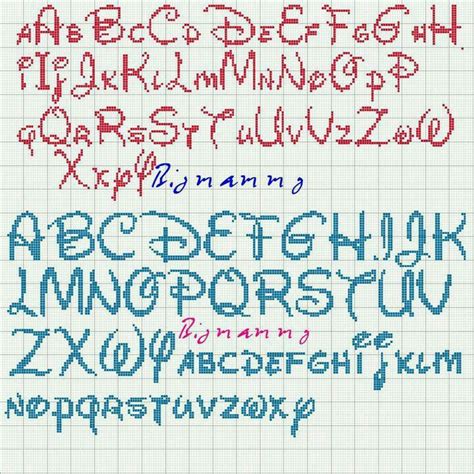 aAbBcCdDeEfFgGhH
iIjJkKlLmMnNoOpP
qQrRsStTuUvVzZwW
xXyY
ABCDEFGHIJK
LMNOPQRSTUV
ZXWYABCDEFGHijKLM
NOPQRSTUVZWXY